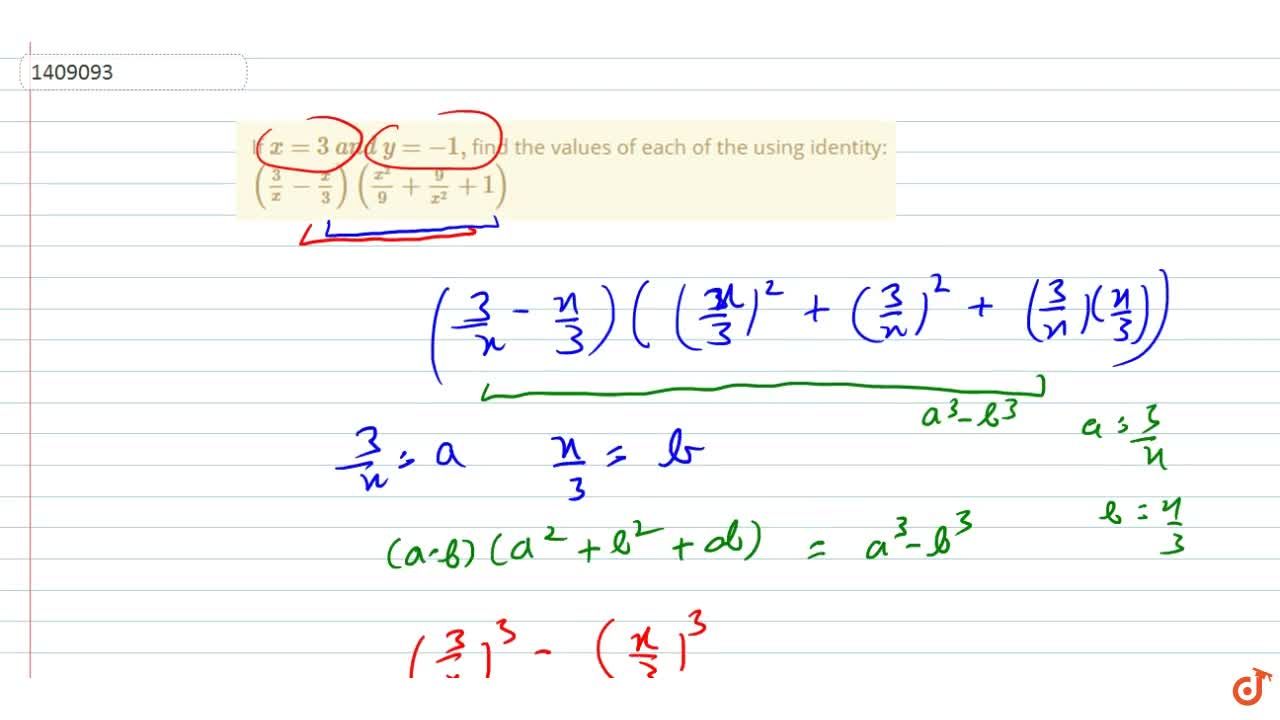 1409093
If x = 3 and y = −1, find the values of each of the using identity:
(3/x − x/3) (x²/9 + 9/x² + 1)
(3/x − x/3) ((x/3)² + (3/x)² + (3/x)(x/3))
a³ − b³
a = 3/x
3/x = a x/3 = b
b = x/3
(a-b) (a² + b² + ab) = a³ − b³
(3/x)³ − (x/3)³